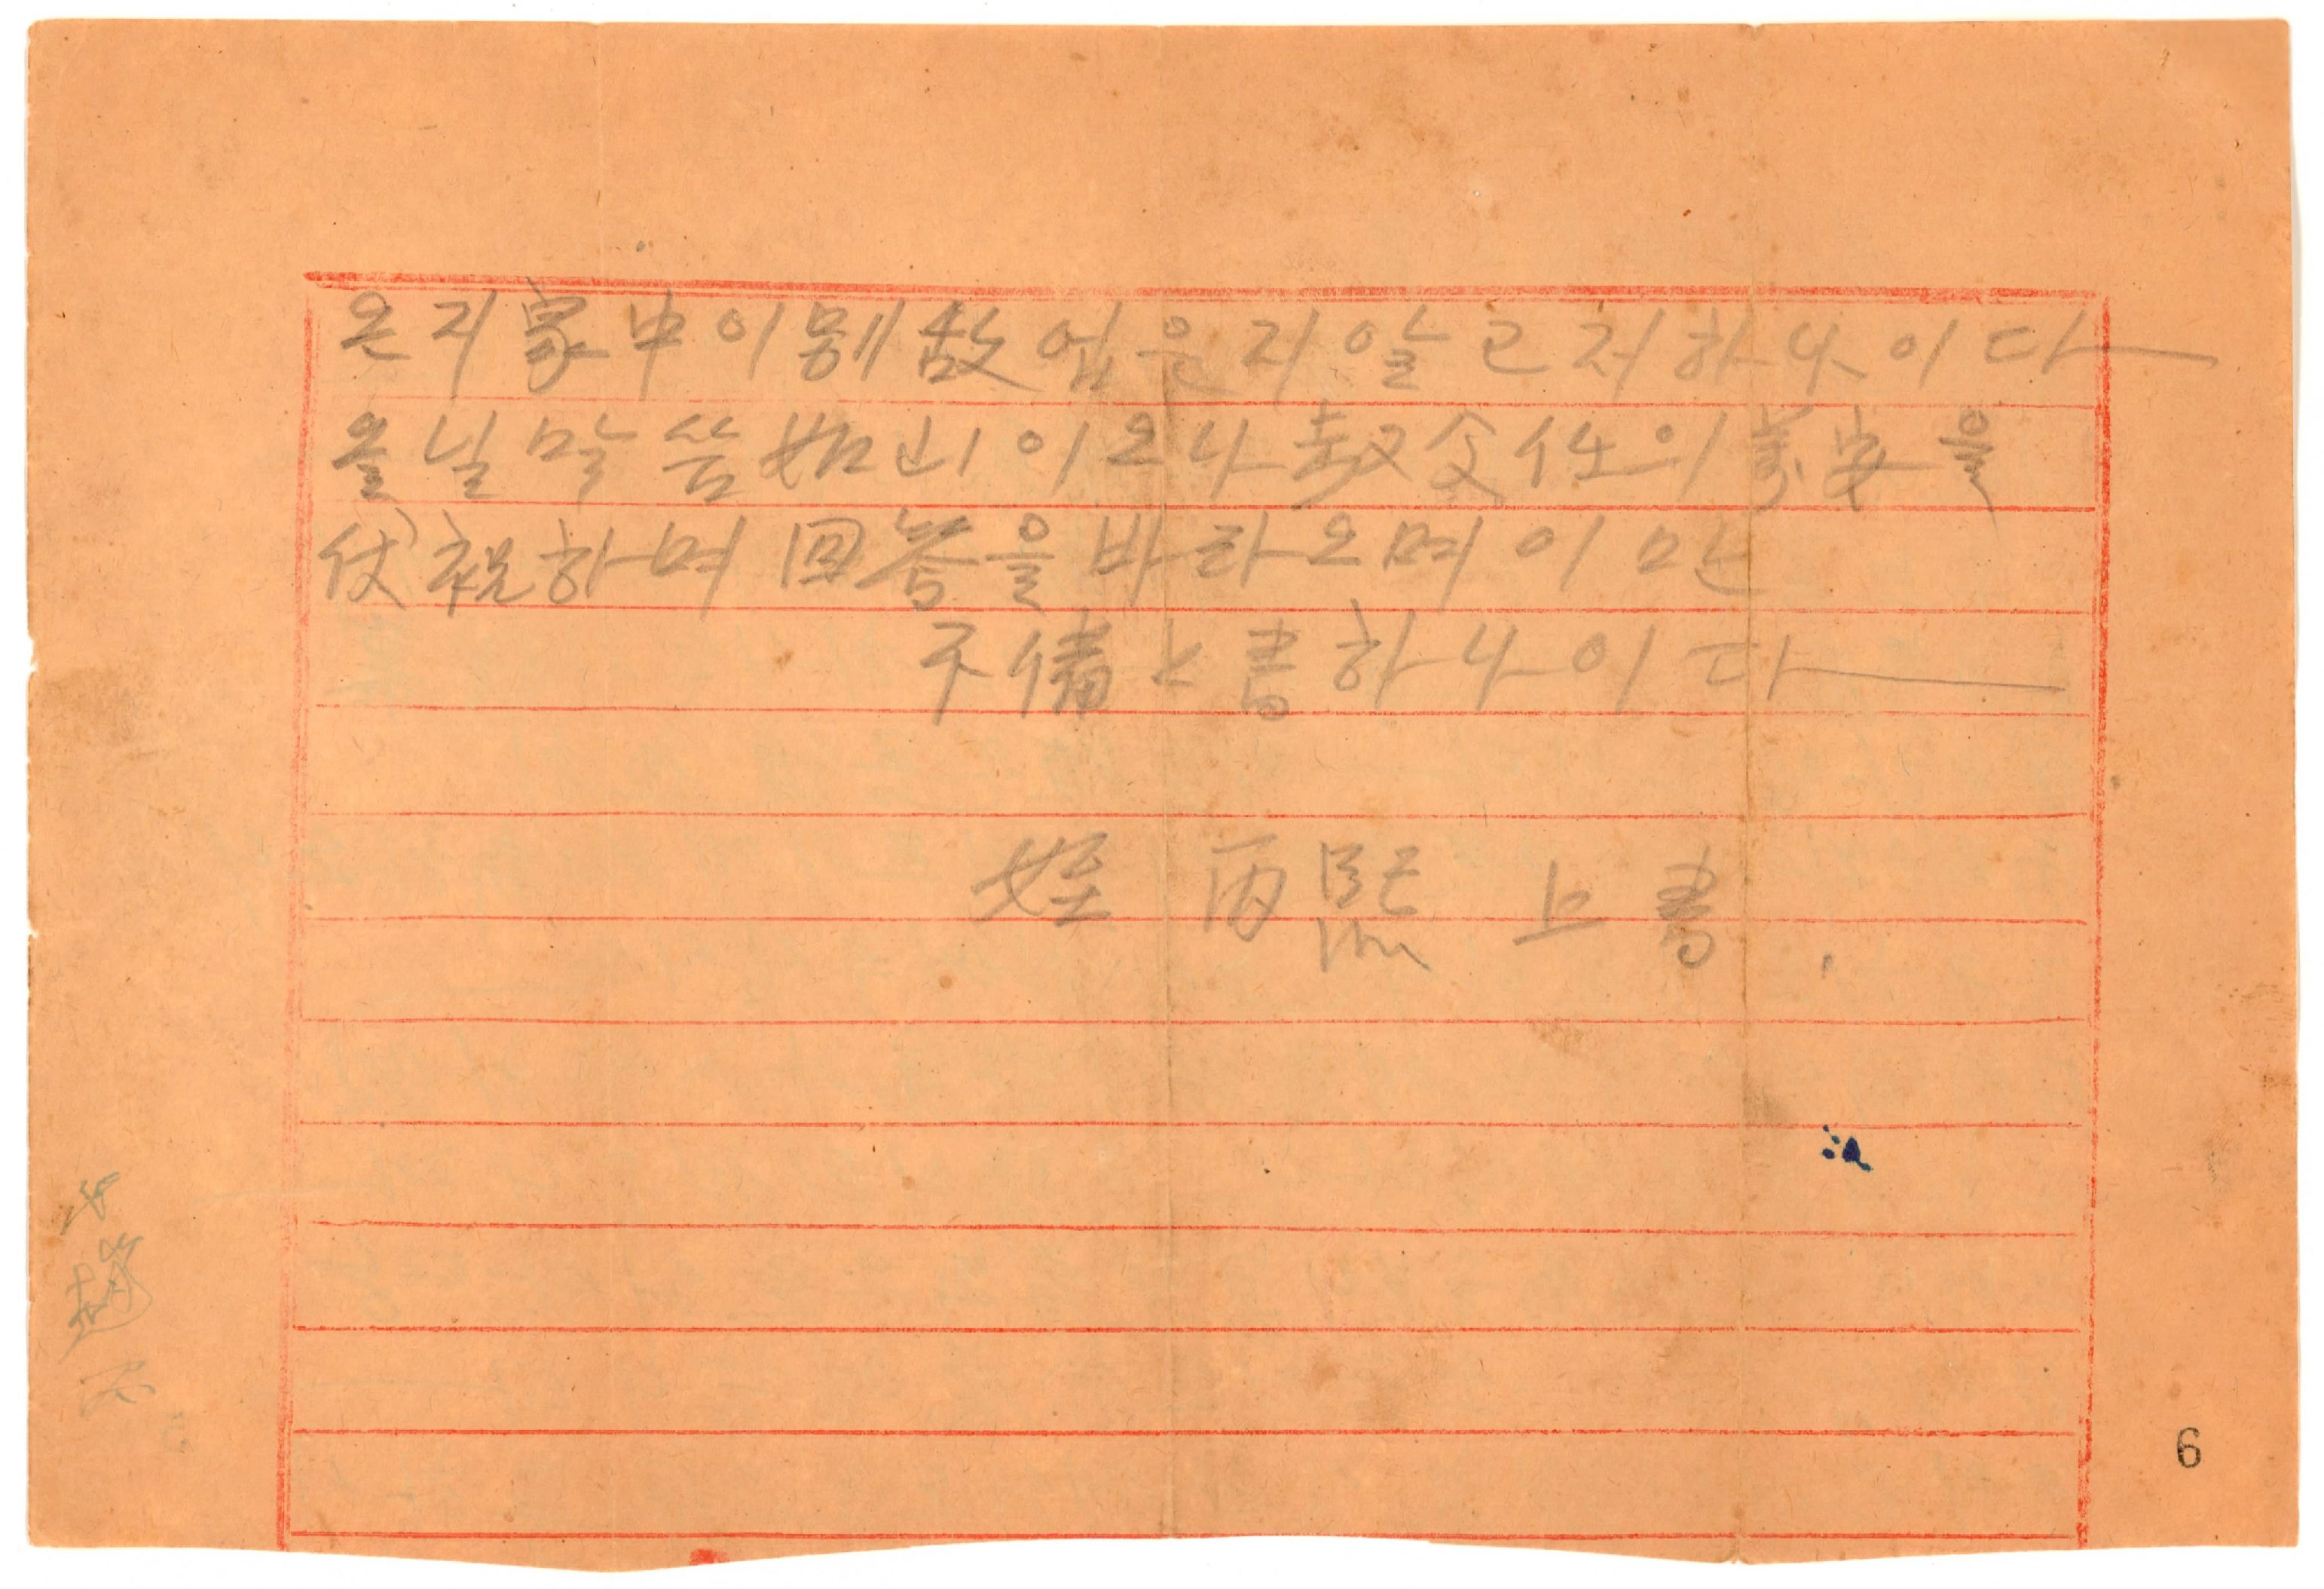 온지 家中이 別故 업은지 알고저 하나이다
올닐 말씀 如山이오나 父任의 萬安을
伏祝하며 回答을 바라오며 이만
不備上書하나이다
姪 丙熙 上書.
6